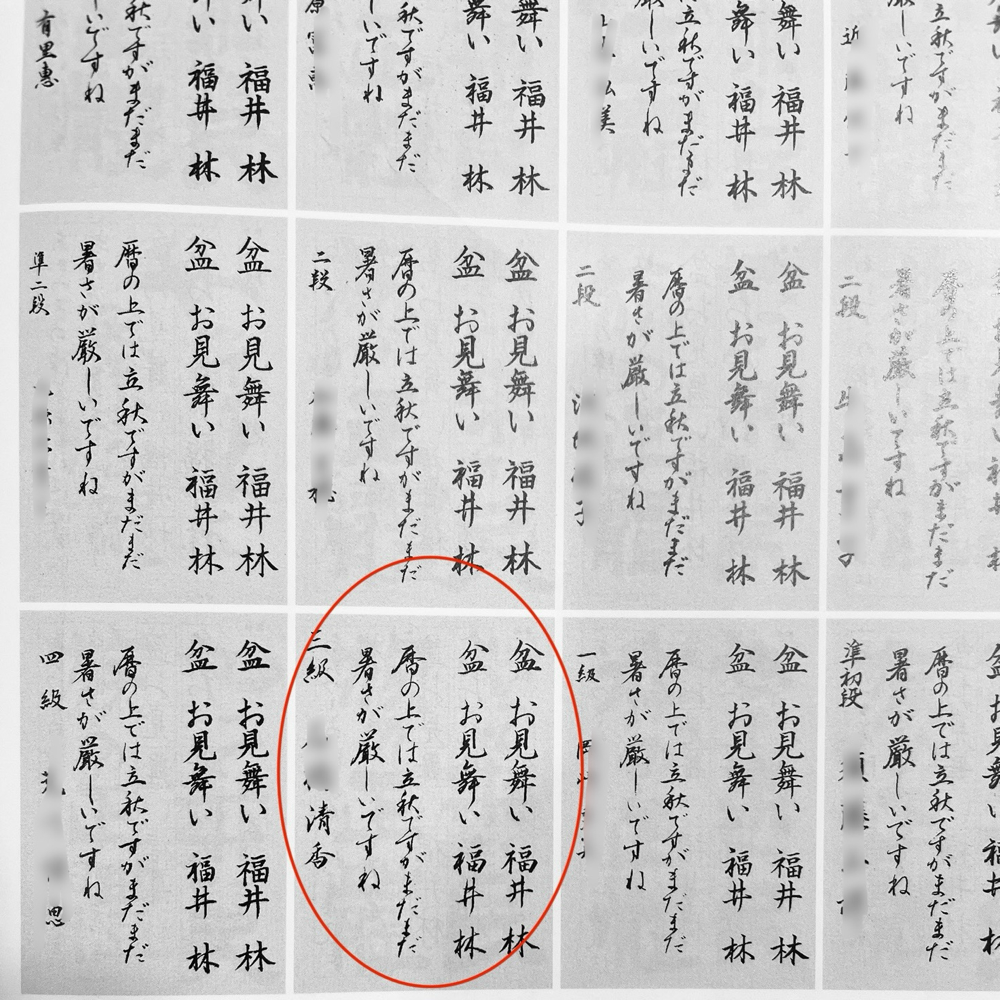 立秋ですがまだまだ
しいですね
近
舞い 福井 林
舞い 福井 林
立秋ですがまだまだ
しいですね
美
舞い 福井 林
舞い 福井 林
秋ですがまだまだ
いですね
い 福井 林
い 福井 林
秋ですがまだまだ
いですね
有里惠
暦の上では立秋ですがまだまだ
暑さが厳しいですね
二段
盆 お見舞い 福井 林
盆 お見舞い 福井 林
暦の上では立秋ですがまだまだ
暑さが厳しいですね
二段 子
盆 お見舞い 福井 林
盆 お見舞い 福井 林
暦の上では立秋ですがまだまだ
暑さが厳しいですね
二段
盆 お見舞い 福井 林
盆 お見舞い 福井 林
暦の上では立秋ですがまだまだ
暑さが厳しいですね
準二段
盆 お見舞い 福井 林
暦の上では立秋ですがまだまだ
暑さが厳しいですね
準初段
盆 お見舞い 福井 林
盆 お見舞い 福井 林
暦の上では立秋ですがまだまだ
暑さが厳しいですね
一級
盆 お見舞い 福井 林
盆 お見舞い 福井 林
暦の上では立秋ですがまだまだ
暑さが厳しいですね
三級 清香
盆 お見舞い 福井 林
盆 お見舞い 福井 林
暦の上では立秋ですがまだまだ
暑さが厳しいですね
四級 思